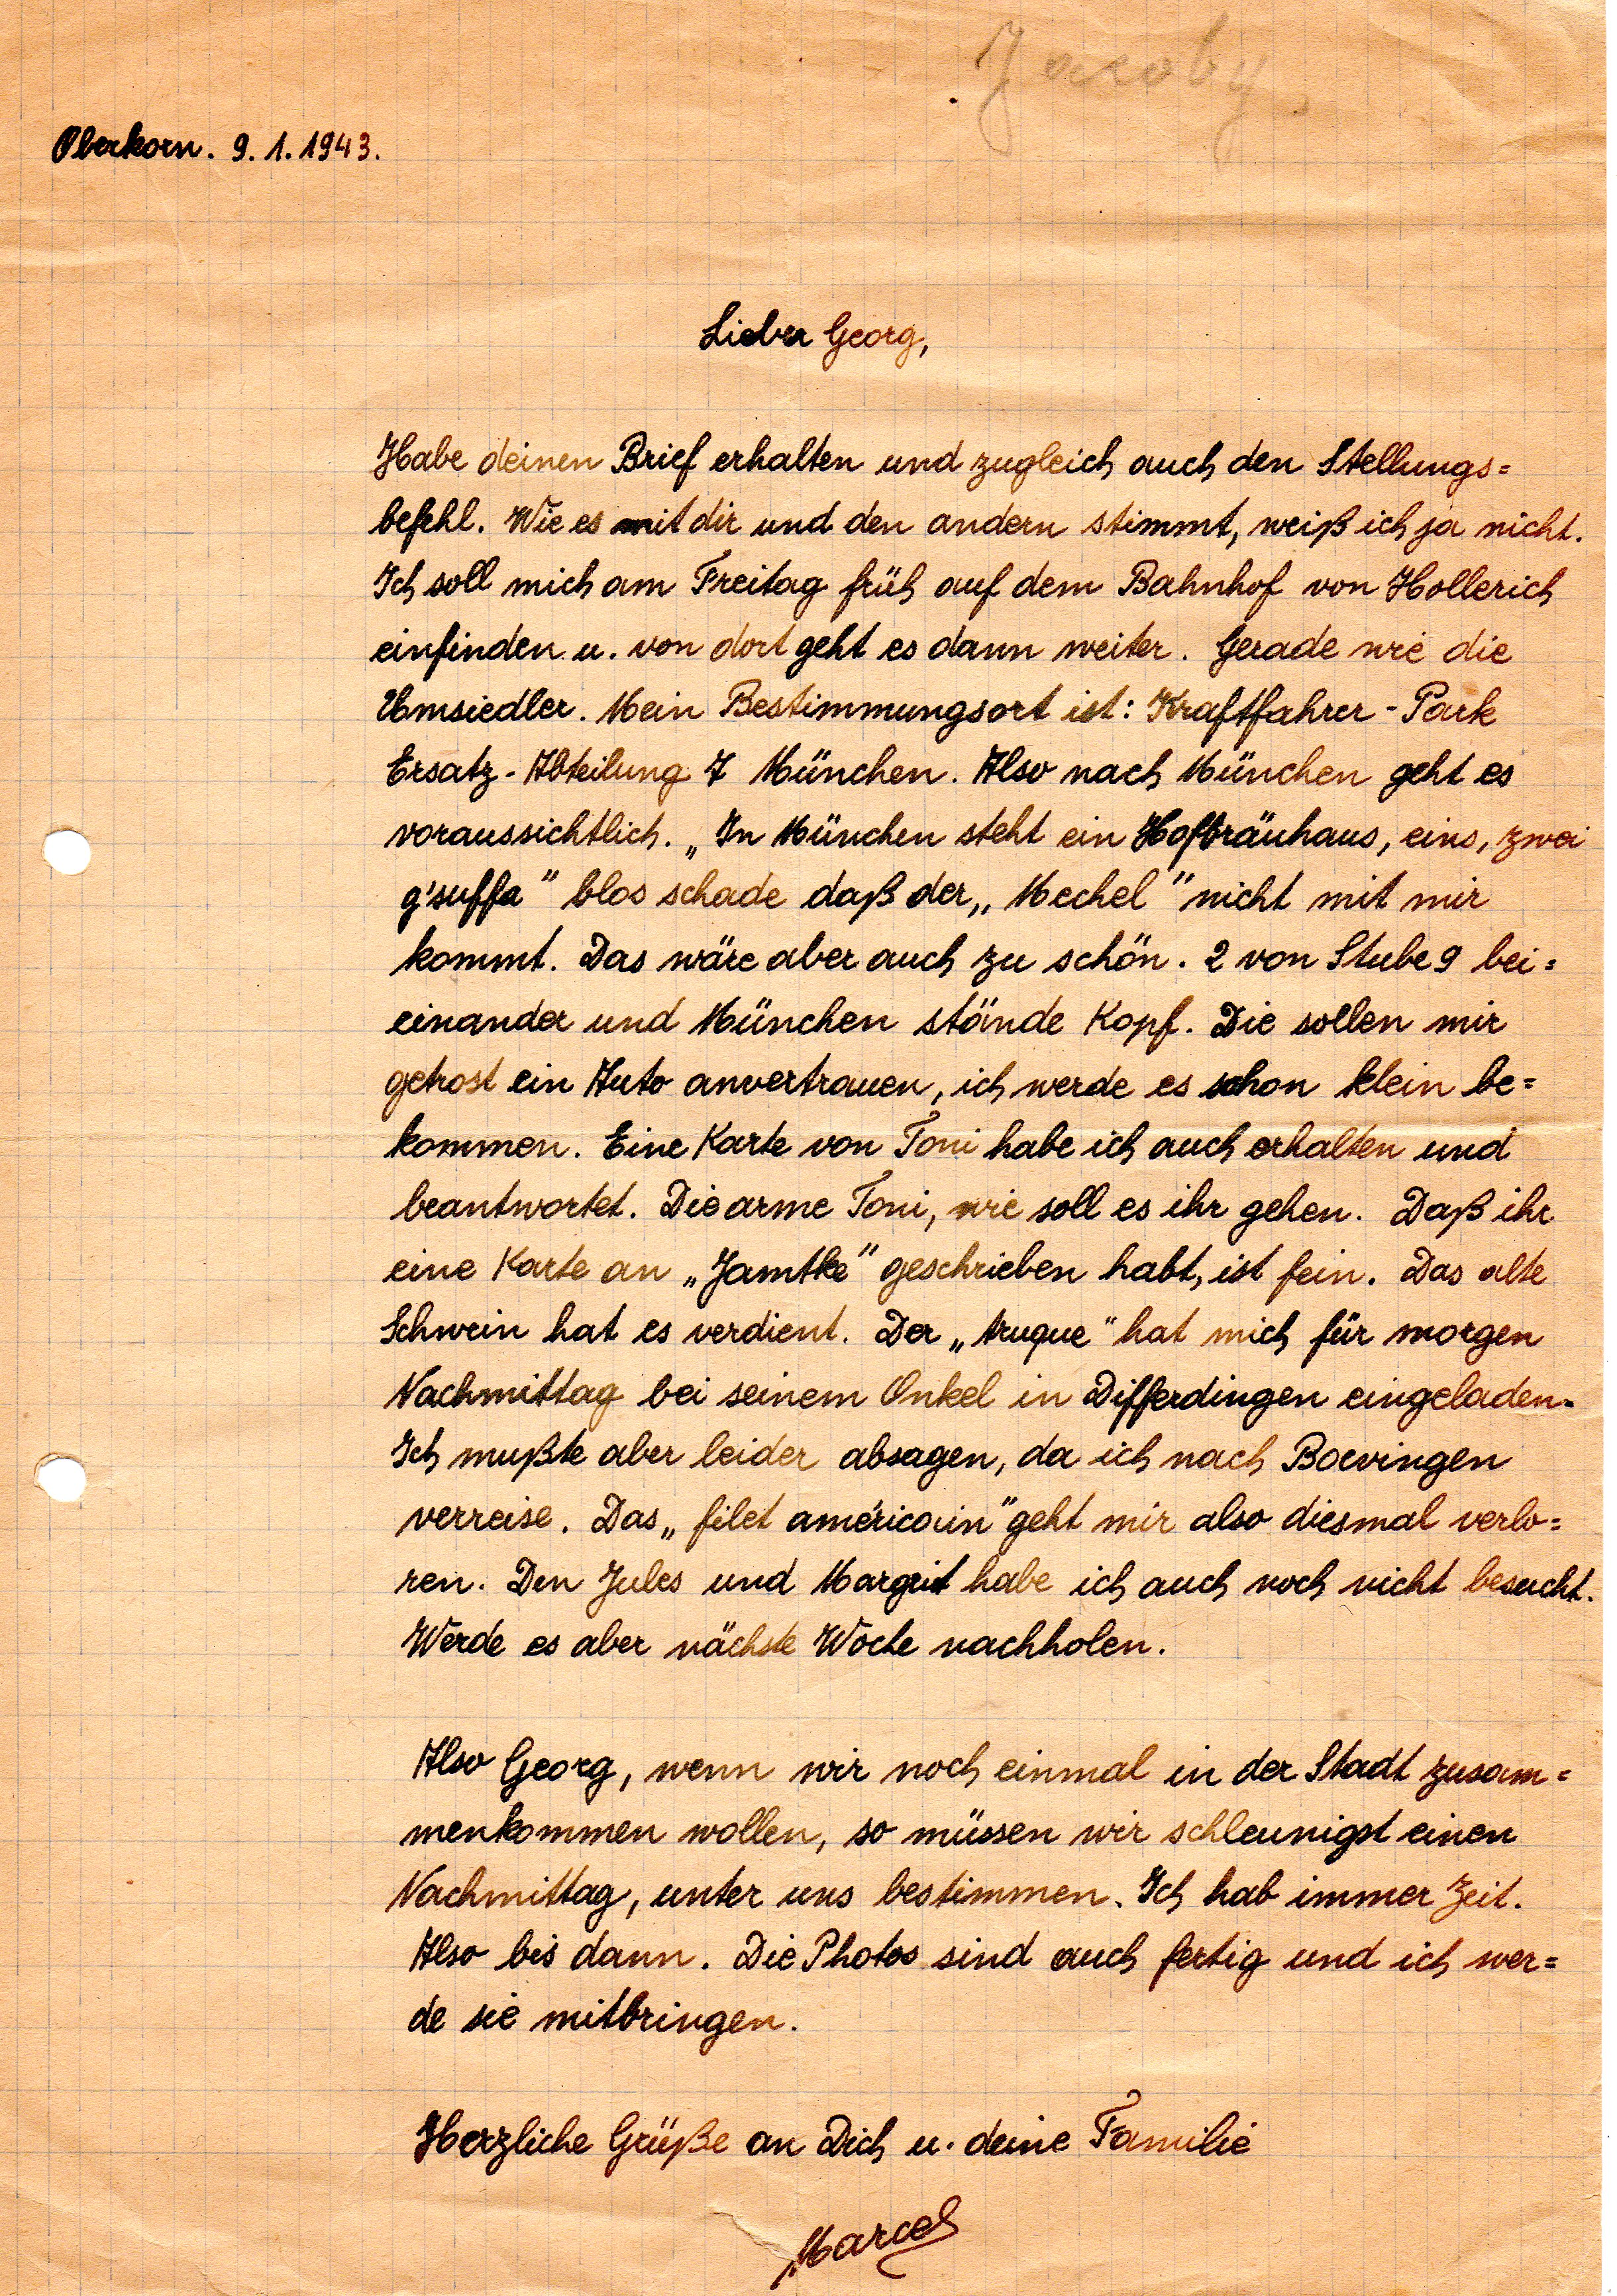 Jacoby
Oberkorn. 9. 1. 1943.
Lieber Georg,
Habe deinen Brief erhalten und zugleich auch den Stellungs=
befehl. Wie es mit dir und den andern stimmt, weiß ich ja nicht.
Ich soll mich am Freitag früh auf dem Bahnhof von Hollerich
einfinden u. von dort geht es dann weiter. Gerade wie die
Umsiedler. Mein Bestimmungsort ist: Kraftfahrer - Park
Ersatz - Abteilung 7 München. Also nach München geht es
voraussichtlich. „In München steht ein Hofbräuhaus, eins, zwei
g'suffa" blos schade daß der „Mechel" nicht mit mir
kommt. Das wäre aber auch zu schön. 2 von Stube 9 bei=
einander und München stände Kopf. Die sollen mir
getrost ein Auto anvertrauen, ich werde es schon klein be=
kommen. Eine Karte von Toni habe ich auch erhalten und
beantwortet. Die arme Toni, wie soll es ihr gehen. Daß ihr
eine Karte an „Jamtke" geschrieben habt, ist fein. Das alte
Schwein hat es verdient. Der „truque" hat mich für morgen
Nachmittag bei seinem Onkel in Differdingen eingeladen.
Ich mußte aber leider absagen, da ich nach Boevingen
verreise. Das „filet américain" geht mir also diesmal verlo=
ren. Den Jules und Margrit habe ich auch noch nicht besucht.
Werde es aber nächste Woche nachholen.
Also Georg, wenn wir noch einmal in der Stadt zusam=
menkommen wollen, so müssen wir schleunigst einen
Nachmittag, unter uns bestimmen. Ich hab immer Zeit.
Also bis dann. Die Photos sind auch fertig und ich wer=
de sie mitbringen.
Herzliche Grüße an Dich u. deine Familie
Marcel